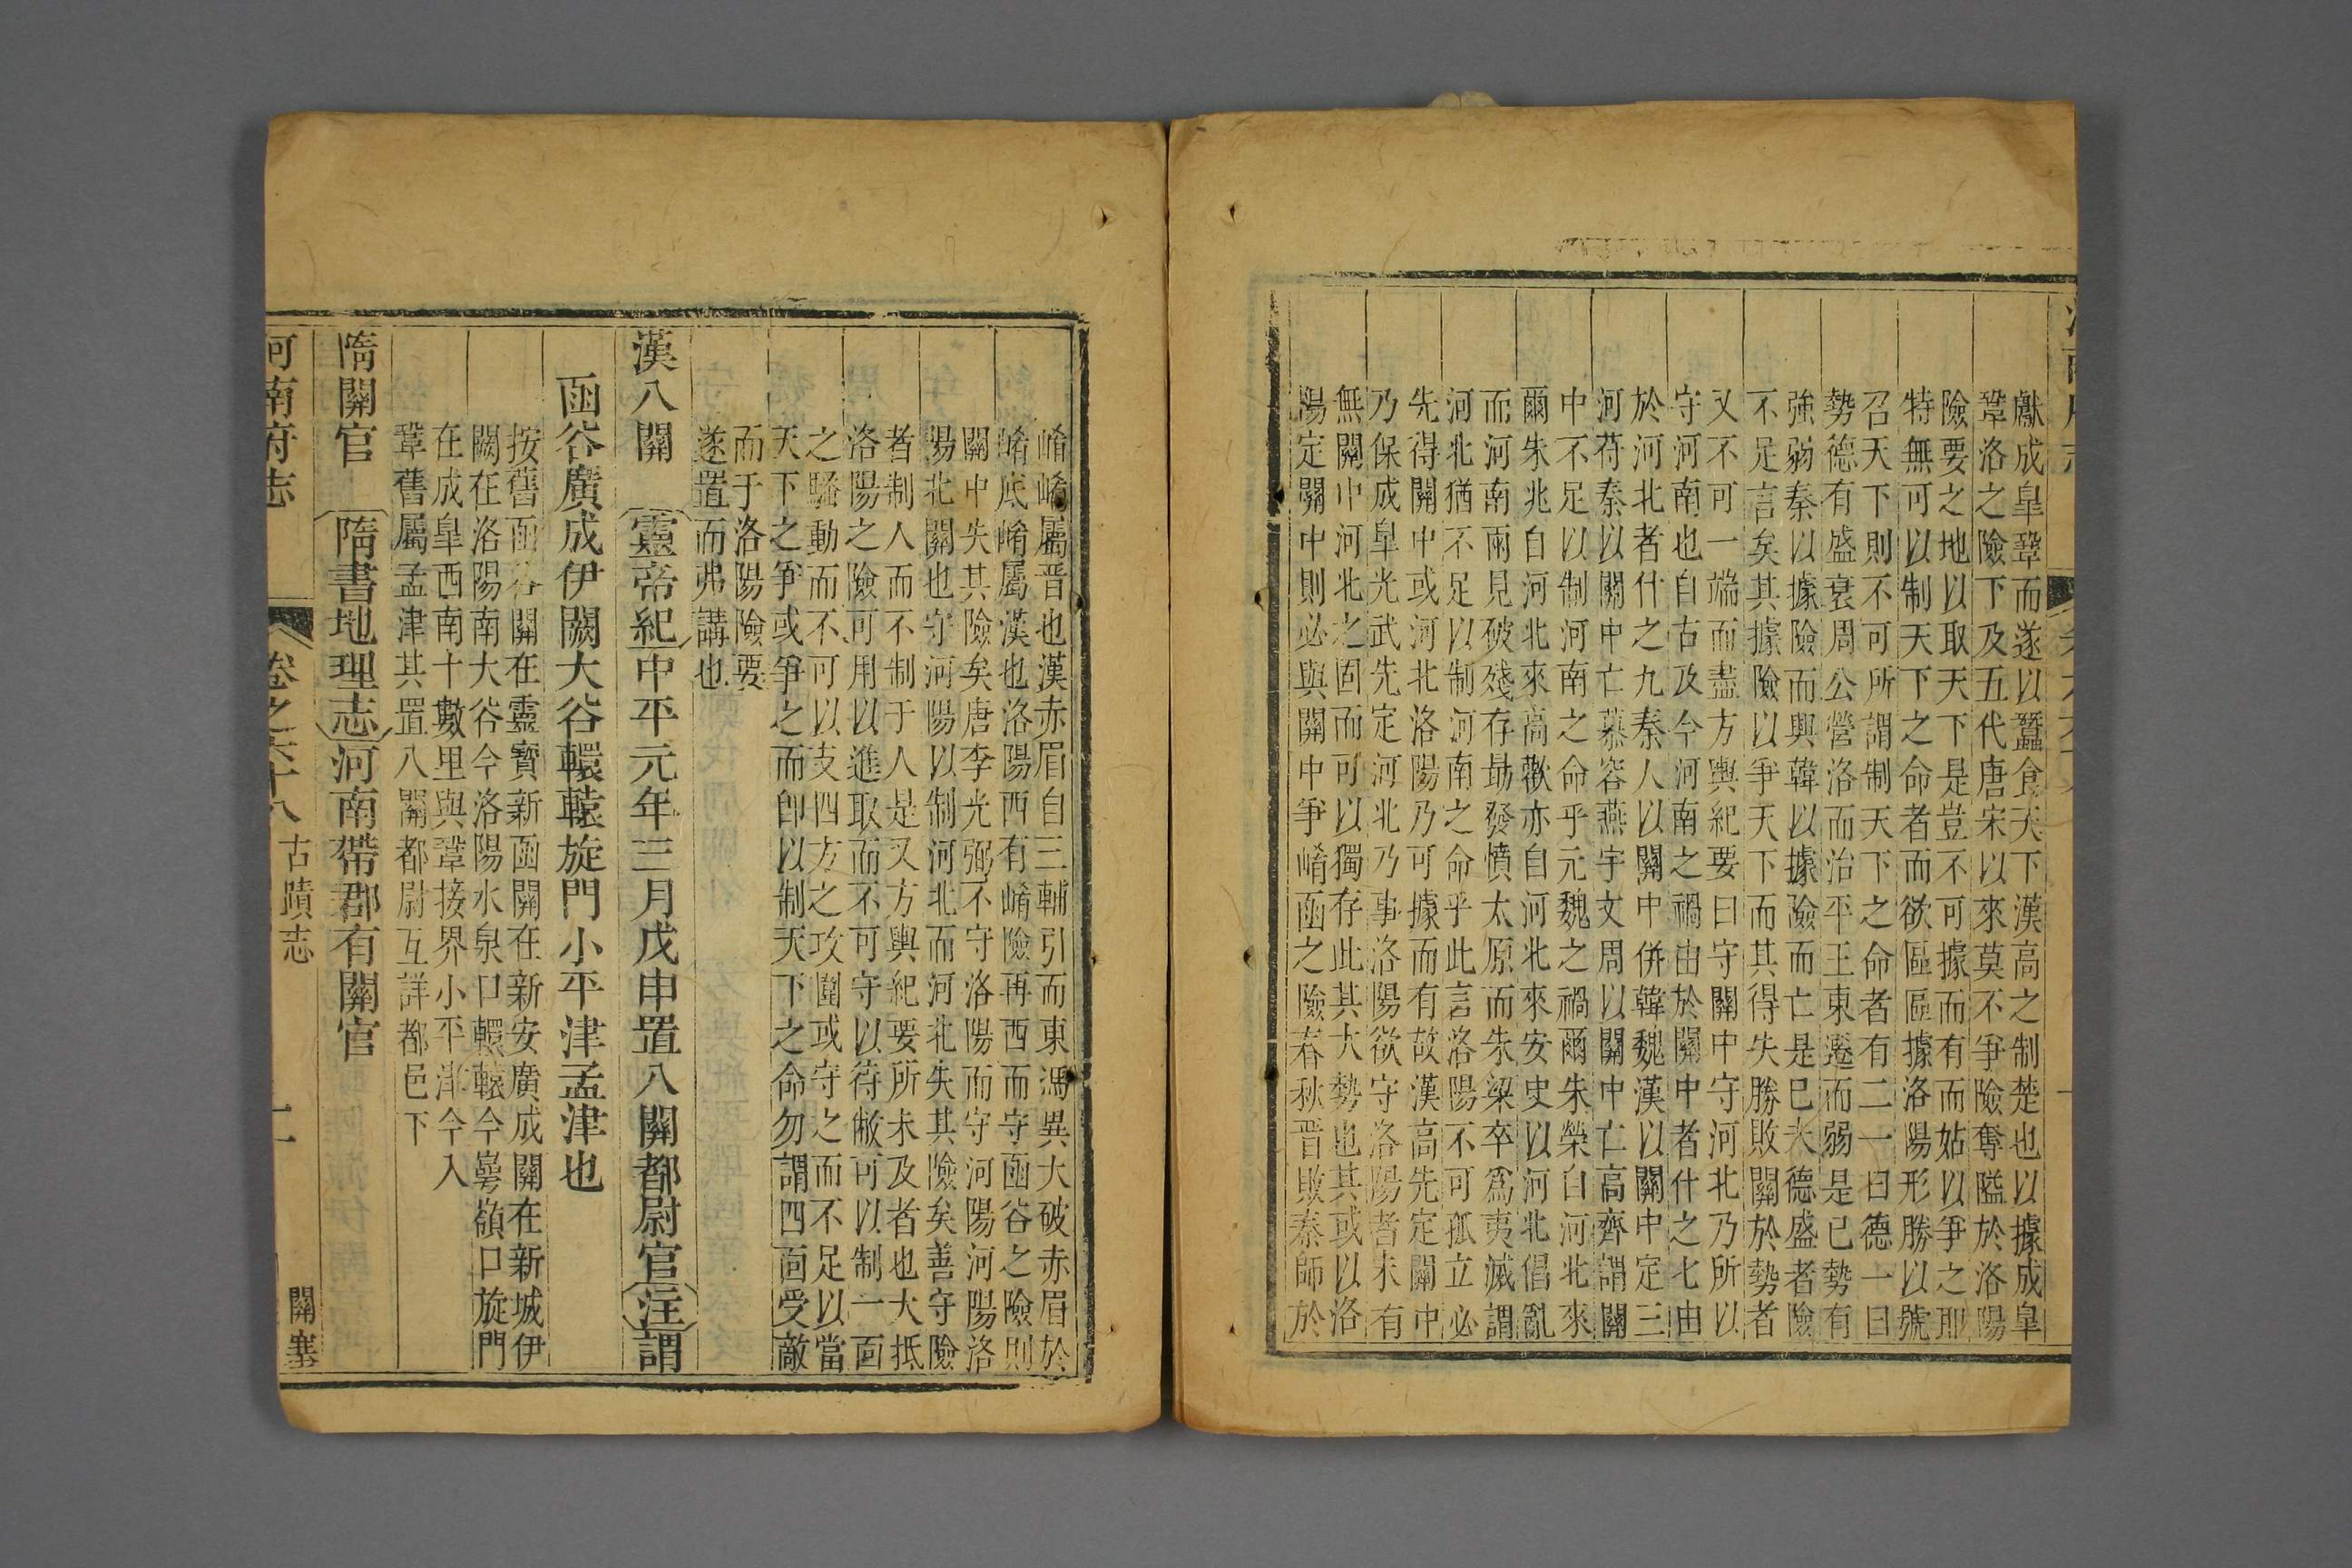 獻成皐鞏而遂以蠶食天下漢高之制楚也以據成皐
鞏洛之險下及五代唐宋以來莫不爭險奪隘於洛陽
險要之地以取天下是豈不可據而有而姑以爭之耶
特無可以制天下之命者而欲區區據洛陽形勝以號
召天下則不可所謂制天下之命者有二一曰德一曰
勢德有盛衰周公營洛而治平王東遷而弱是已勢有
強弱秦以據險而興韓以據險而亡是已夫德盛者險
不足言矣其據險以爭天下而其得失勝敗關於勢者
又不可一端而盡方輿紀要曰守關中守河北乃所以
守河南也自古及今河南之禍由於關中者什之七由
於河北者什之九秦人以關中併韓魏漢以關中定三
河苻秦以關中亡慕容燕宇文周以關中亡高齊謂關
中不足以制河南之命乎元魏之禍爾朱榮自河北來
爾朱兆自河北來高歡亦自河北來安史以河北倡亂
而河南兩見破殘存勗發憤太原而朱梁卒爲夷滅謂
河北猶不足以制河南之命乎此言洛陽不可孤立必
先得關中或河北洛陽乃可據而有故漢高先定關中
乃保成皐光武先定河北乃事洛陽欲守洛陽者未有
無關中河北之固而可以獨存此其大勢也其或以洛
陽定關中則必與關中爭崤函之險春秋晋敗秦師於
崤崤屬晋也漢赤眉自三輔引而東馮異大破赤眉於
崤底崤屬漢也洛陽西有崤險再西而守函谷之險則
關中失其險矣唐李光弼不守洛陽而守河陽河陽洛
陽北關也守河陽以制河北而河北失其險矣善守險
者制人而不制于人是又方輿紀要所未及者也大抵
洛陽之險可用以進取而不可守以待敝可以制一面
之騷動而不可以支四方之攻圍或守之而不足以當
天下之爭或爭之而卽以制天下之命勿謂四面受敵
而于洛陽險要
遂置而弗講也
漢八關　靈帝紀中平元年三月戊申置八關都尉官注謂
函谷廣成伊闕大谷轘轅旋門小平津孟津也
按舊函谷關在靈寶新函關在新安廣成關在新城伊
闕在洛陽南大谷今洛陽水泉口轘轅今崿嶺口旋門
在成皐西南十數里與鞏接界小平津今入
鞏舊屬孟津其置八關都尉互詳都邑下
隋關官　隋書地理志河南帶郡有關官
河南府志　卷之六十八　古蹟志　關塞